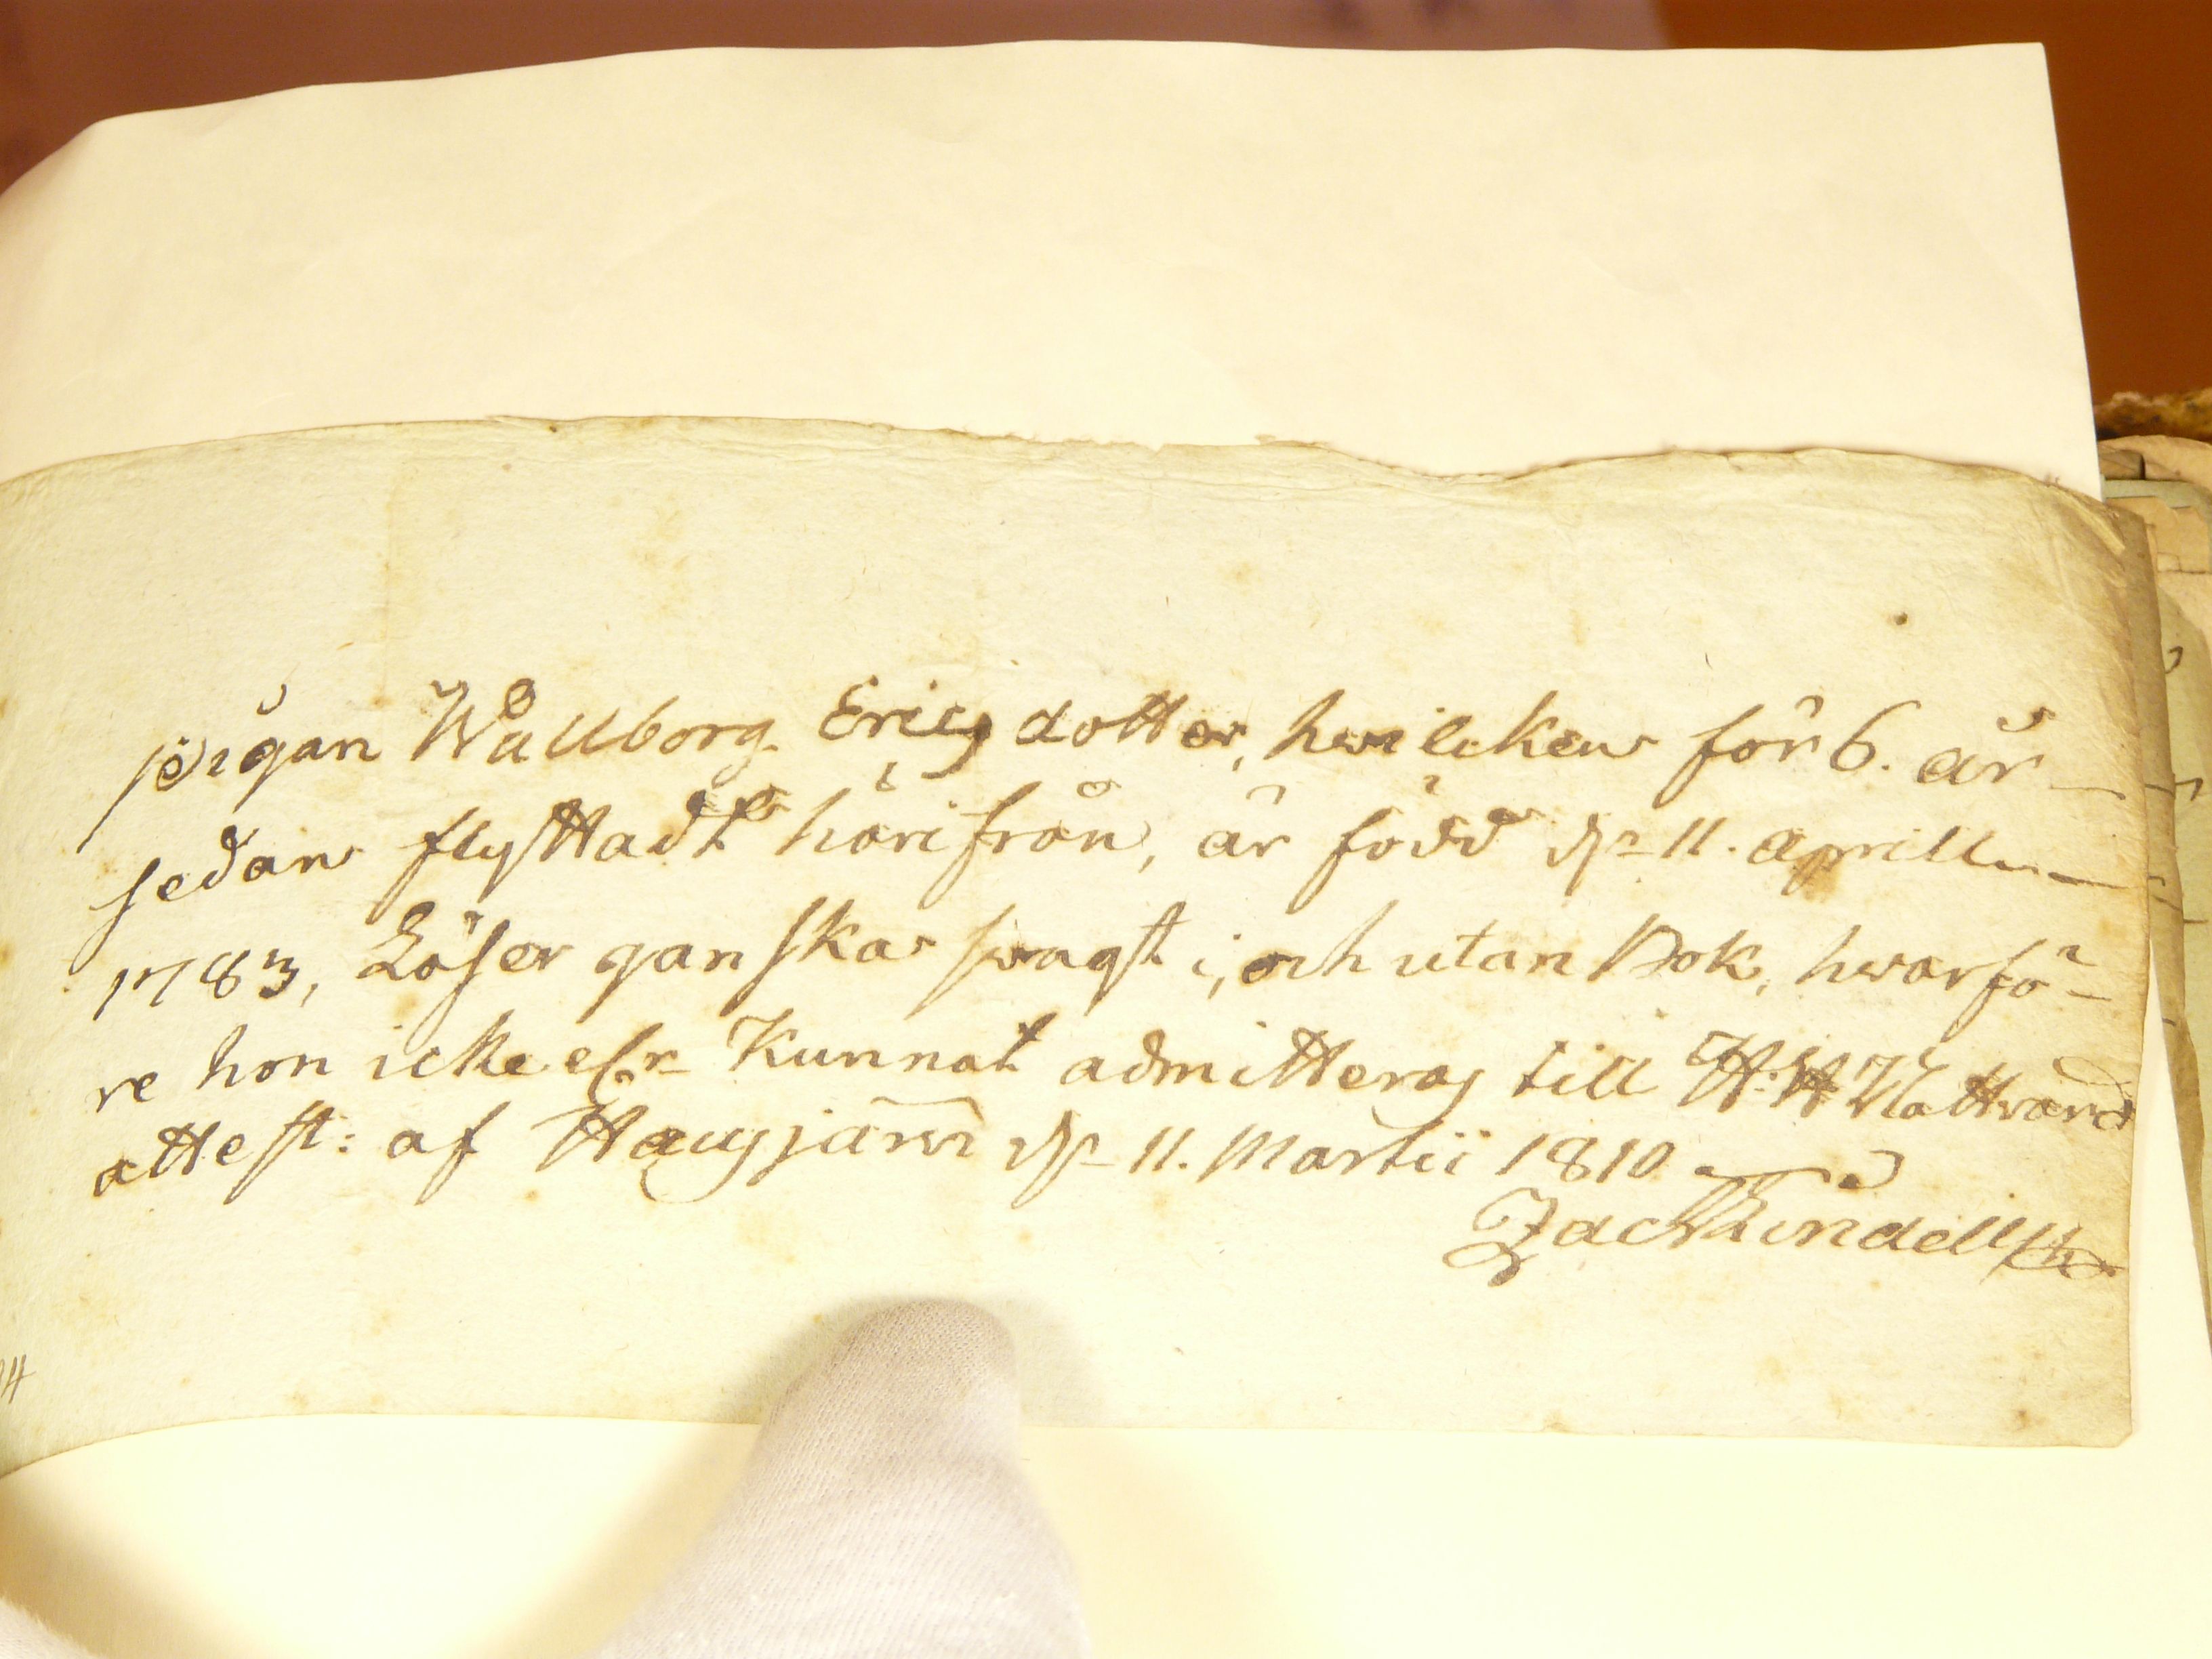 Pigan Wallborg Ericsdotter, hwilcken för 6. år
sedan flyttadt härifrån, är född d. 11. aprill
1783, Läser ganska swagt i, och utan Bok, hwarfö-
re hon icke Kunnat admitteras till H: H Nattvard
attest: af Haugjärwi d. 11. Martii 1810
Zach